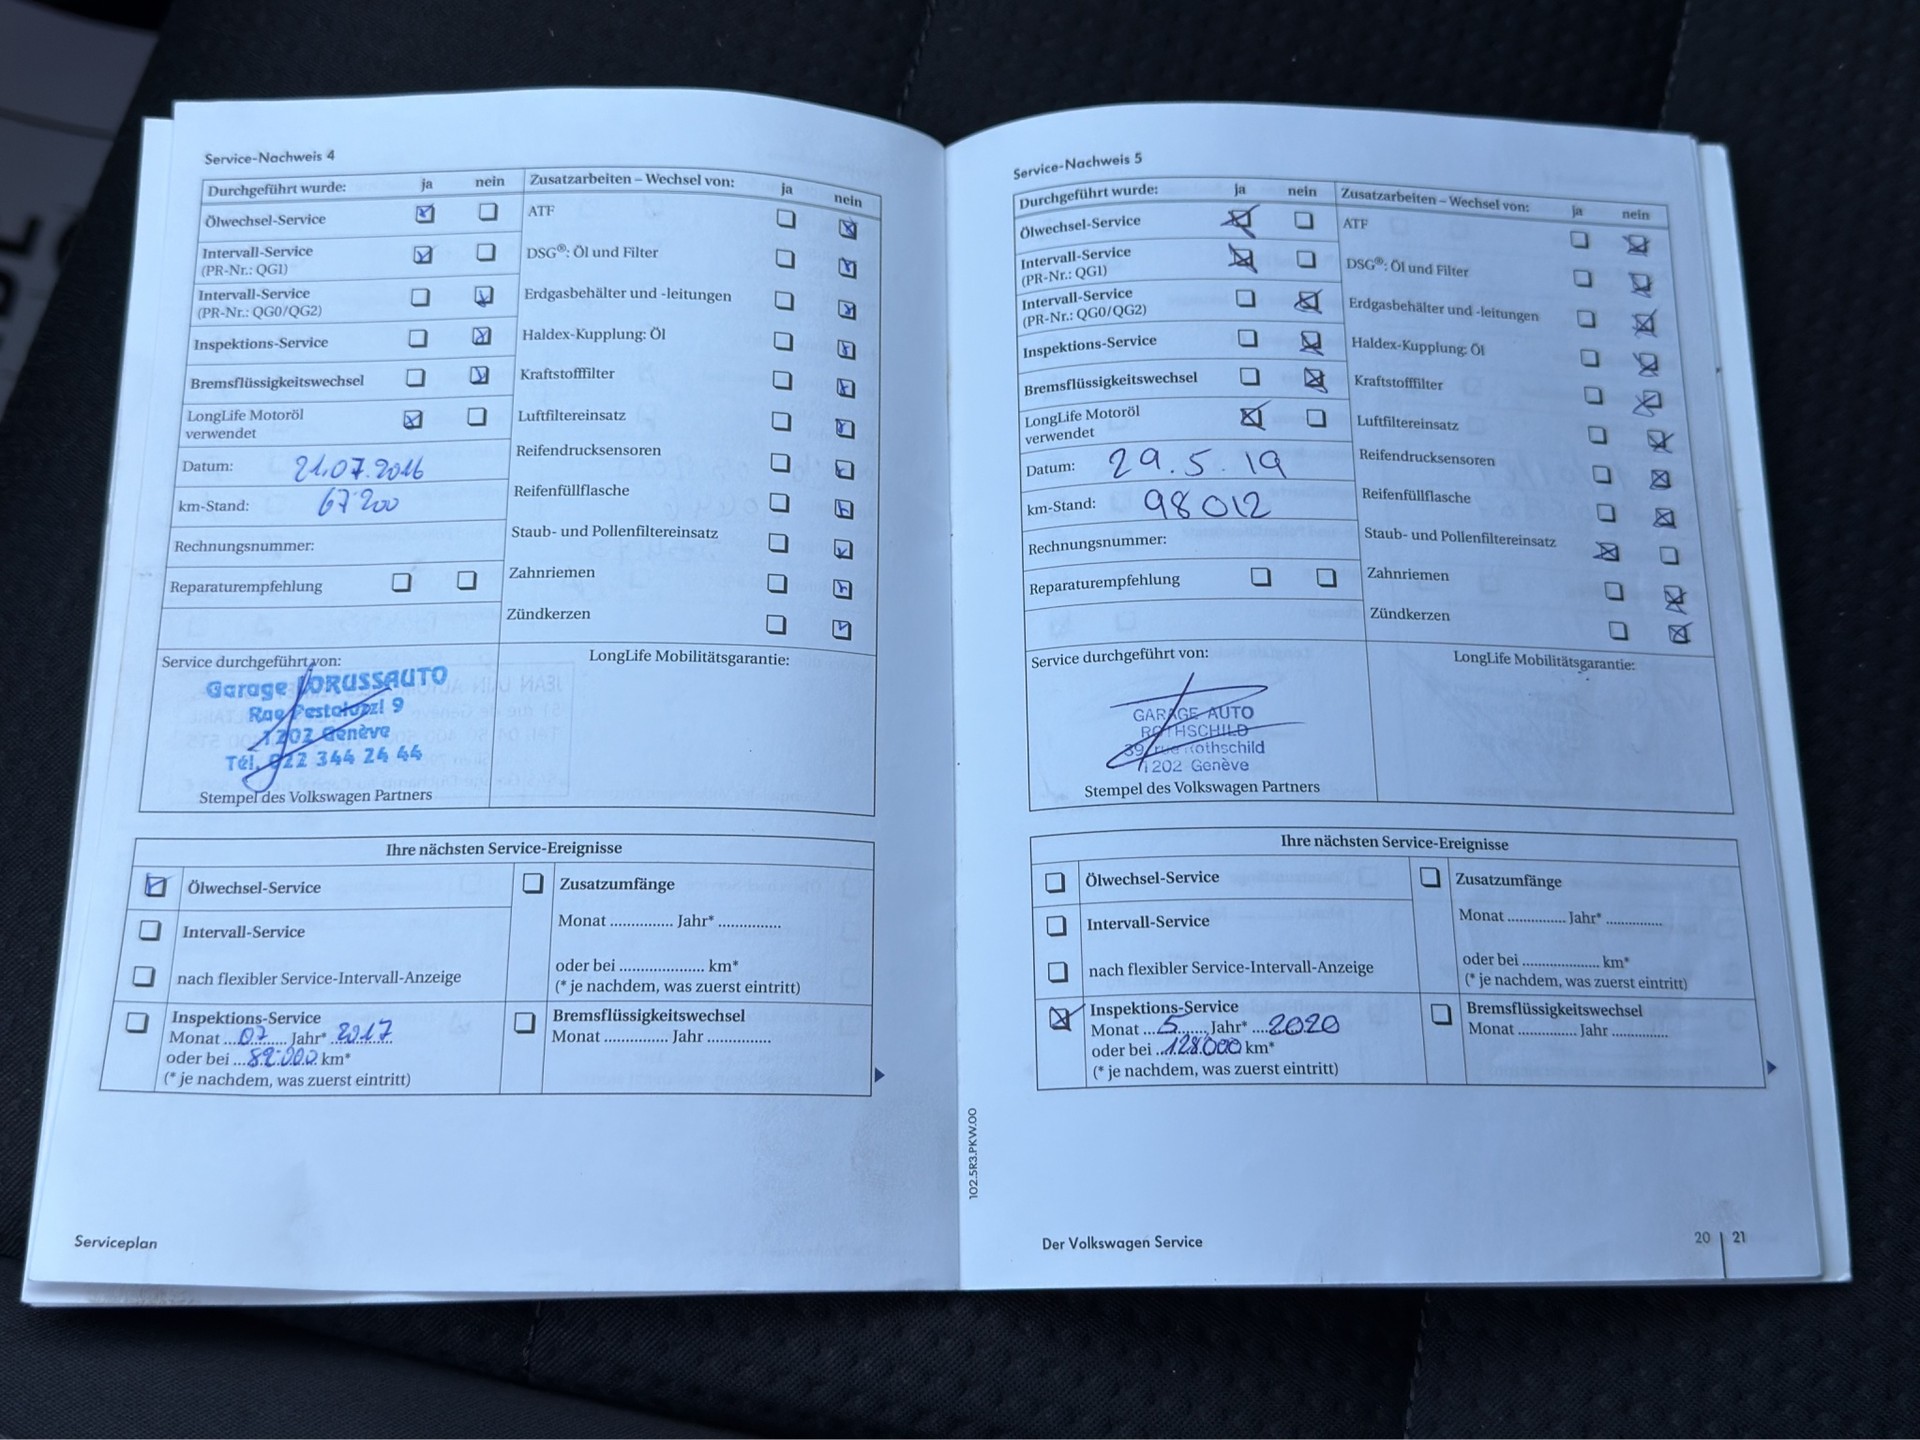 Service-Nachweis 4
Durchgeführt wurde: ja nein
Ölwechsel-Service
Intervall-Service
(PR-Nr.: QG1)
Intervall-Service
(PR-Nr.: QG0/QG2)
Inspektions-Service
Bremsflüssigkeitswechsel
LongLife Motoröl
verwendet
Datum: 21.07.2016
km-Stand: 67'200
Rechnungsnummer:
Reparaturempfehlung
Zusatzarbeiten – Wechsel von: ja nein
ATF
DSG®: Öl und Filter
Erdgasbehälter und -leitungen
Haldex-Kupplung: Öl
Kraftstofffilter
Luftfiltereinsatz
Reifendrucksensoren
Reifenfüllflasche
Staub- und Pollenfiltereinsatz
Zahnriemen
Zündkerzen
Service durchgeführt von:
Garage
Rue Pestalozzi 9
1202 Genève
Tél. 022 344 24 44
Stempel des Volkswagen Partners
LongLife Mobilitätsgarantie:
Ihre nächsten Service-Ereignisse
Ölwechsel-Service
Intervall-Service
nach flexibler Service-Intervall-Anzeige
Inspektions-Service
Monat ...07...... Jahr* .2017.
oder bei ...82'000. km*
(* je nachdem, was zuerst eintritt)
Zusatzumfänge
Monat ............... Jahr* ...............
oder bei ..................... km*
(* je nachdem, was zuerst eintritt)
Bremsflüssigkeitswechsel
Monat ............... Jahr ...............
Serviceplan
Service-Nachweis 5
Durchgeführt wurde: ja nein
Ölwechsel-Service
Intervall-Service
(PR-Nr.: QG1)
Intervall-Service
(PR-Nr.: QG0/QG2)
Inspektions-Service
Bremsflüssigkeitswechsel
LongLife Motoröl
verwendet
Datum: 29.5.19
km-Stand: 98012
Rechnungsnummer:
Reparaturempfehlung
Zusatzarbeiten – Wechsel von: ja nein
ATF
DSG®: Öl und Filter
Erdgasbehälter und -leitungen
Haldex-Kupplung: Öl
Kraftstofffilter
Luftfiltereinsatz
Reifendrucksensoren
Reifenfüllflasche
Staub- und Pollenfiltereinsatz
Zahnriemen
Zündkerzen
Service durchgeführt von:
GARAGE AUTO
ROTHSCHILD
39, rue Rothschild
1202 Genève
Stempel des Volkswagen Partners
LongLife Mobilitätsgarantie:
Ihre nächsten Service-Ereignisse
Ölwechsel-Service
Intervall-Service
nach flexibler Service-Intervall-Anzeige
Inspektions-Service
Monat ...5....... Jahr* ....2020
oder bei ..128.000 km*
(* je nachdem, was zuerst eintritt)
Zusatzumfänge
Monat ............... Jahr* ...............
oder bei ..................... km*
(* je nachdem, was zuerst eintritt)
Bremsflüssigkeitswechsel
Monat ............... Jahr ...............
102.5R3.PKW.00
Der Volkswagen Service
20 | 21